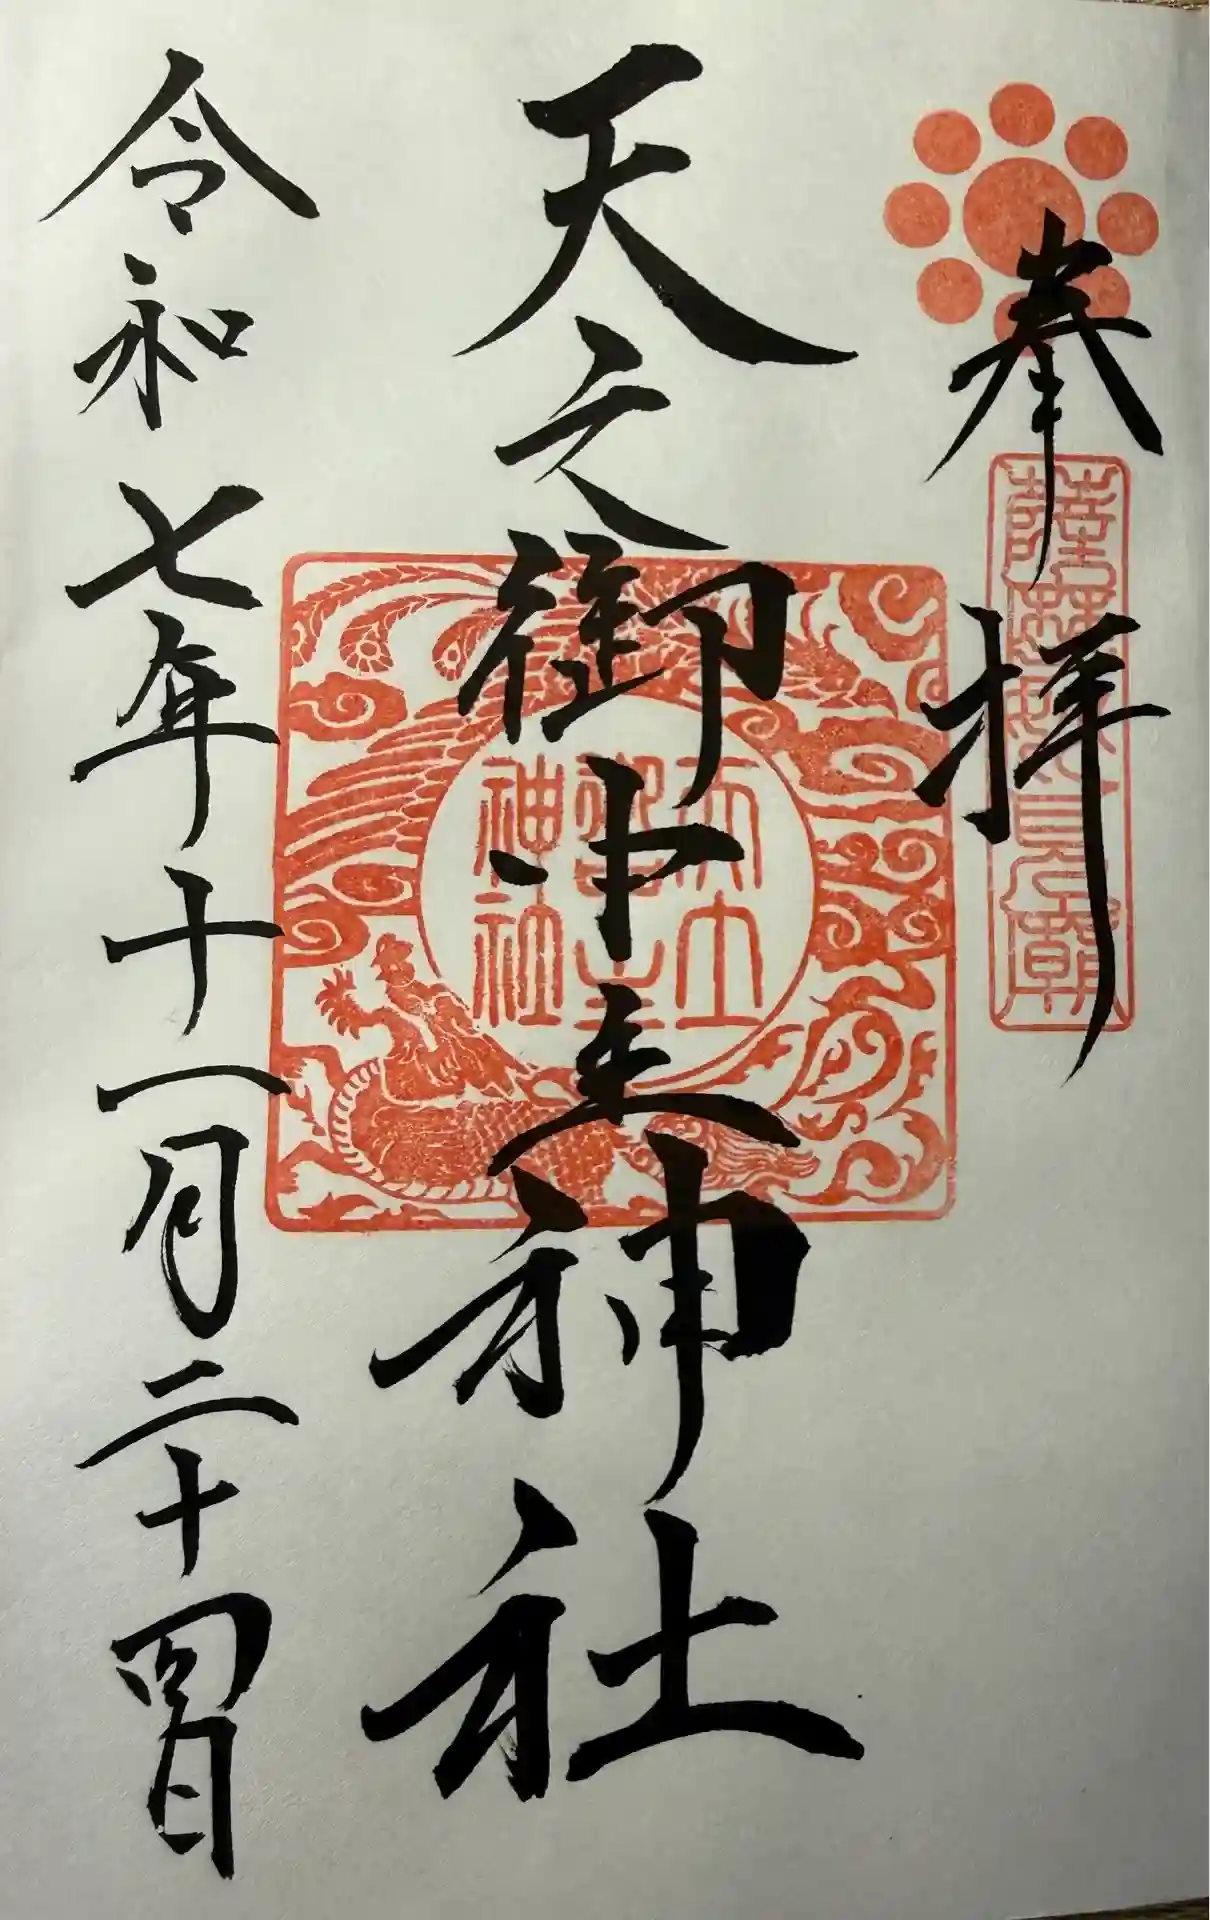 奉拝
天之御中主神社
天之御中主神社
令和七年十一月二十四日